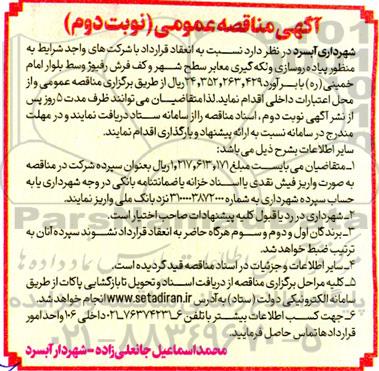 آگهی مناقصه عمومی (نوبت دوم)
شهرداری آبسرد در نظر دارد نسبت به انعقاد قرارداد با شرکت های واجد شرایط به
منظور پیاده روسازی و لکه گیری معابر سطح شهر و کف فرش رفیوژ وسط بلوار امام
خمینی (ره) با برآورد ۲۴,۳۵۲,۲۶۳,۴۲۹ ریال از طریق برگزاری مناقصه عمومی و از
محل اعتبارات داخلی اقدام نماید. لذا متقاضیان می توانند ظرف مدت ۵ روز پس
از نشر آگهی نوبت دوم، اسناد مناقصه را از سامانه ستاد دریافت نمایند و در مهلت
مندرج در سامانه نسبت به ارائه پیشنهاد و بارگذاری اقدام نمایند.
سایر اطلاعات بشرح ذیل می باشد:
۱- متقاضیان می بایست مبلغ ۱,۲۱۷,۶۱۳,۱۷۱ ریال بعنوان سپرده شرکت در مناقصه
به صورت واریز فیش نقدی یا اسناد خزانه یا ضمانتنامه بانکی در وجه شهرداری یا به
حساب سپرده شهرداری به شماره ۳۱۰۰۰۰۳۸۷۲۰۰۰ نزد بانک ملی واریز نمایند.
۲- شهرداری در رد یا قبول کلیه پیشنهادات صاحب اختیار است.
۳- برندگان اول و دوم و سوم هرگاه حاضر به انعقاد قرارداد نشوند سپرده آنان به
ترتیب ضبط خواهد شد.
۴- سایر اطلاعات و جزئیات در اسناد مناقصه قید گردیده است.
۵- کلیه مراحل برگزاری مناقصه از دریافت اسناد و تحویل تا بازگشایی پاکات از طریق
سامانه الکترونیکی دولت (ستاد) به آدرس www.setadiran.ir انجام خواهد شد.
۶- جهت کسب اطلاعات بیشتر با تلفن ۶-۰۲۱۷۶۳۷۴۲۳۱ داخلی ۱۰۶ واحد امور
قراردادها تماس حاصل فرمایید.
محمداسماعیل جانعلی زاده - شهردار آبسرد